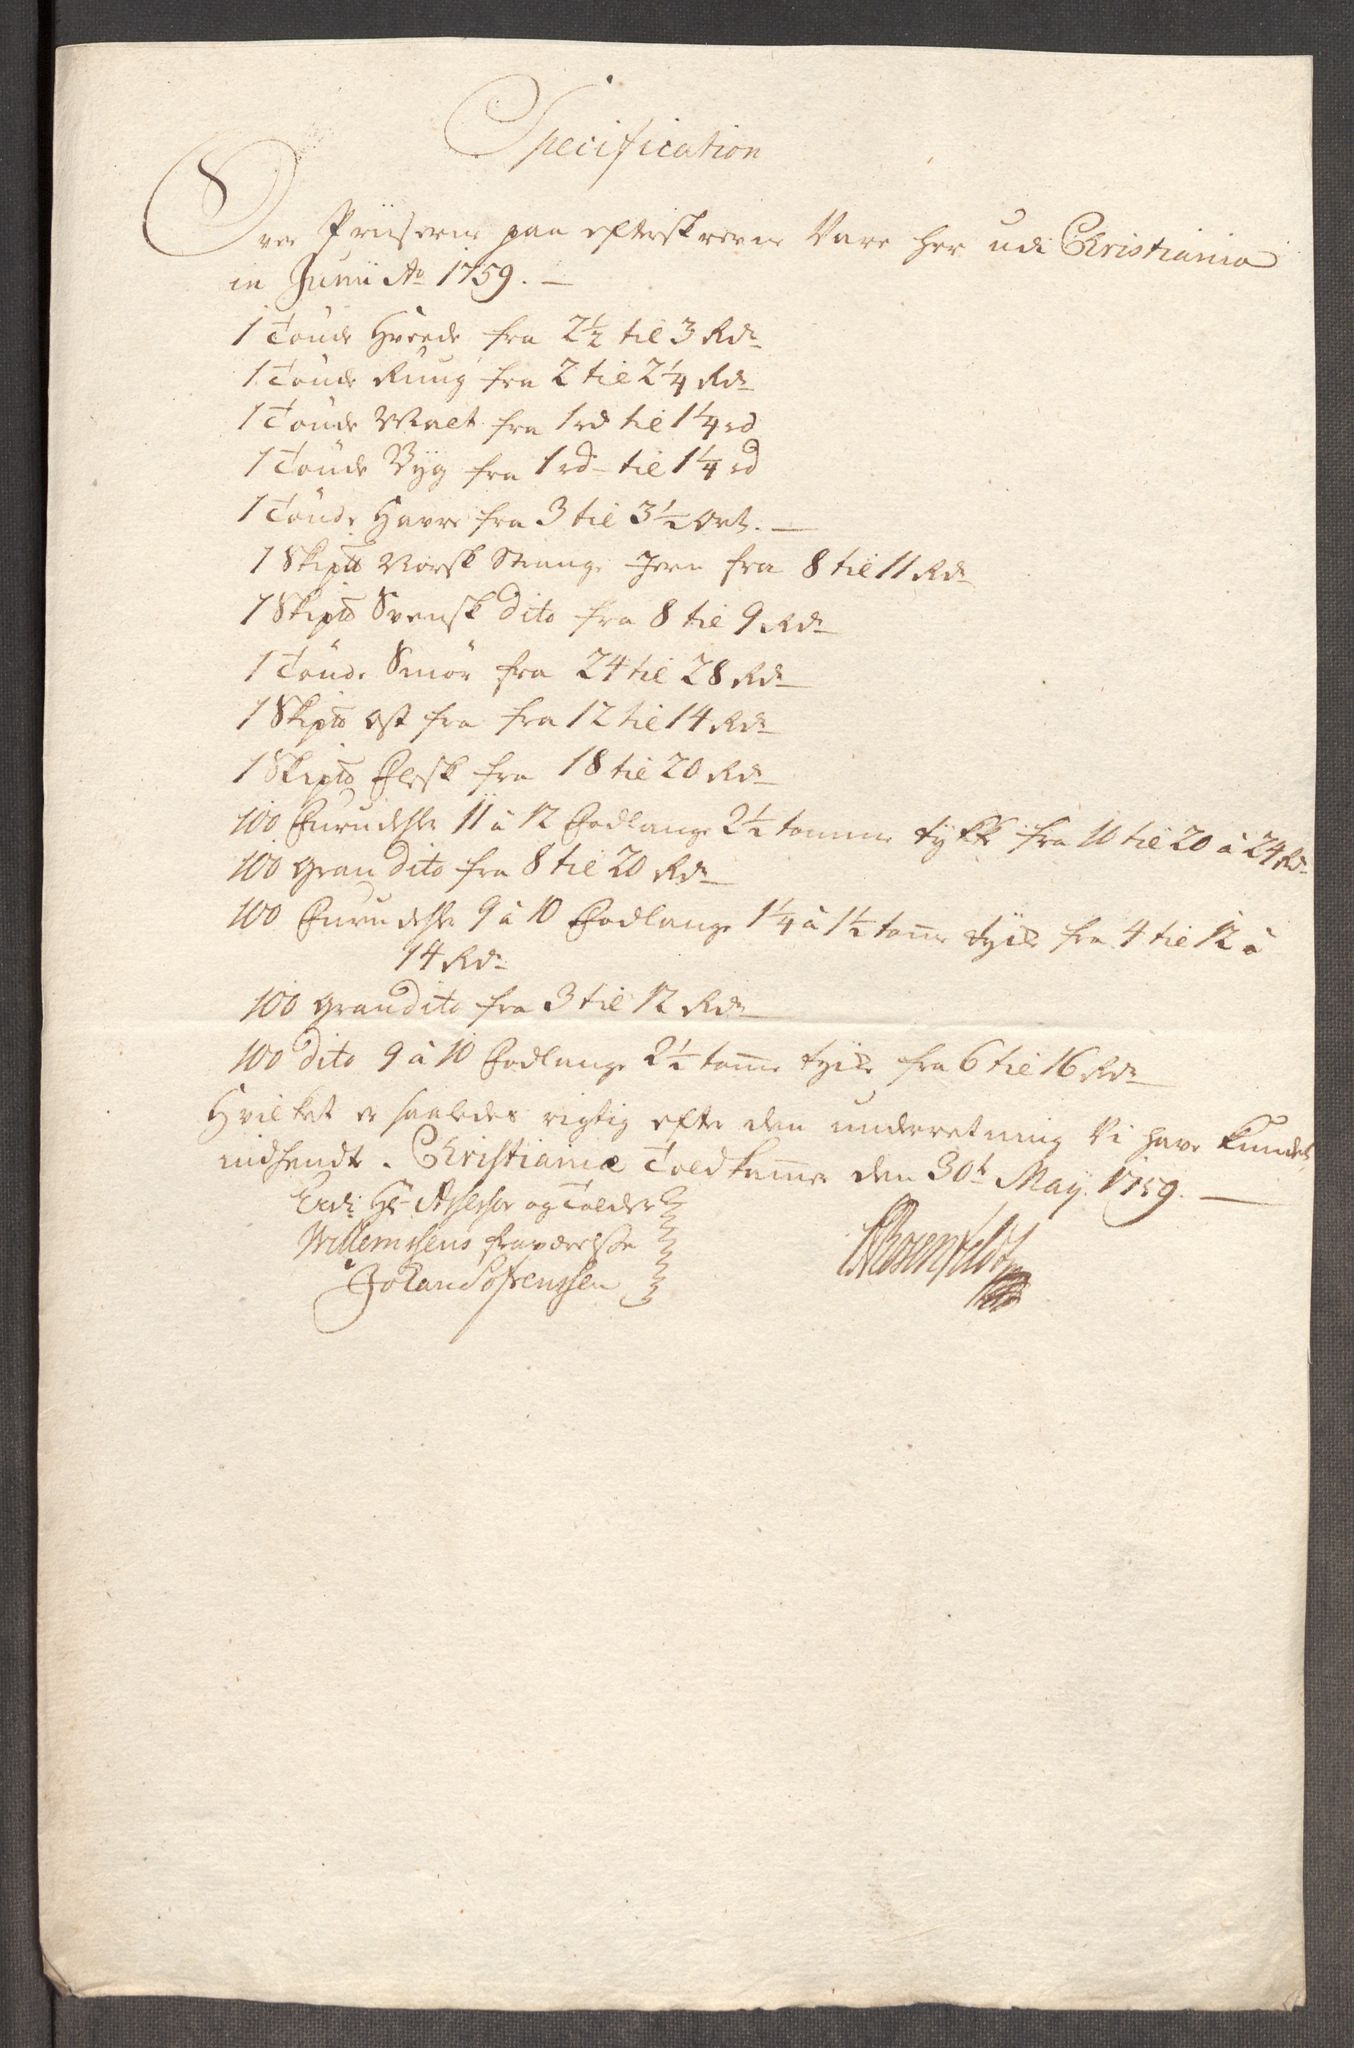 Specification
Over Priiserne paa efterskrevne Vare her udi Christiania
in Junii Ao 1759. —
1 Tönde Hvede fra 2½ til 3 Rdr
1 Tönde Rüug fra 2 til 2¼ Rdr
1 Tönde Malt fra 1 rd til 1¼ rd
1 Tönde Byg fra 1 rd til 1¼ rd
1 Tönde Havre fra 3 til 3½ Ort. —
1 Skip℔ Norsk Stange Jern fra 8 til 11 Rdr
1 Skip℔ Svensk dito fra 8 til 9 Rdr
1 Tönde Smör fra 24 til 28 Rdr
1 Skip℔ Ost fra fra 12 til 14 Rdr
1 Skip℔ Flesk fra 18 til 20 Rdr
100 Furudehler 11 à 12 Fodlange 2½ tomme tykk fra 10 til 20 à 24 Rdr
100 Gran dito fra 8 til 20 Rdr
100 Furudehle 9 à 10 Fodlange 1¼ à 1½ tome tyke fra 4 til 12 à
14 Rdr
100 Gran dito fra 3 til 12 Rdr
100 dito 9 à 10 Fodlange 2½ tome tyke fra 6 til 16 Rdr
Hvilket er saaledes rigtig efter den underretning Vi have kundet
indhendte. Christianiæ Toldkamer den 30te May 1759. —
Udi Hr Assessor og Tolder
Willemsens fraværelse
Johan Sørenssen
Rosenfeldt